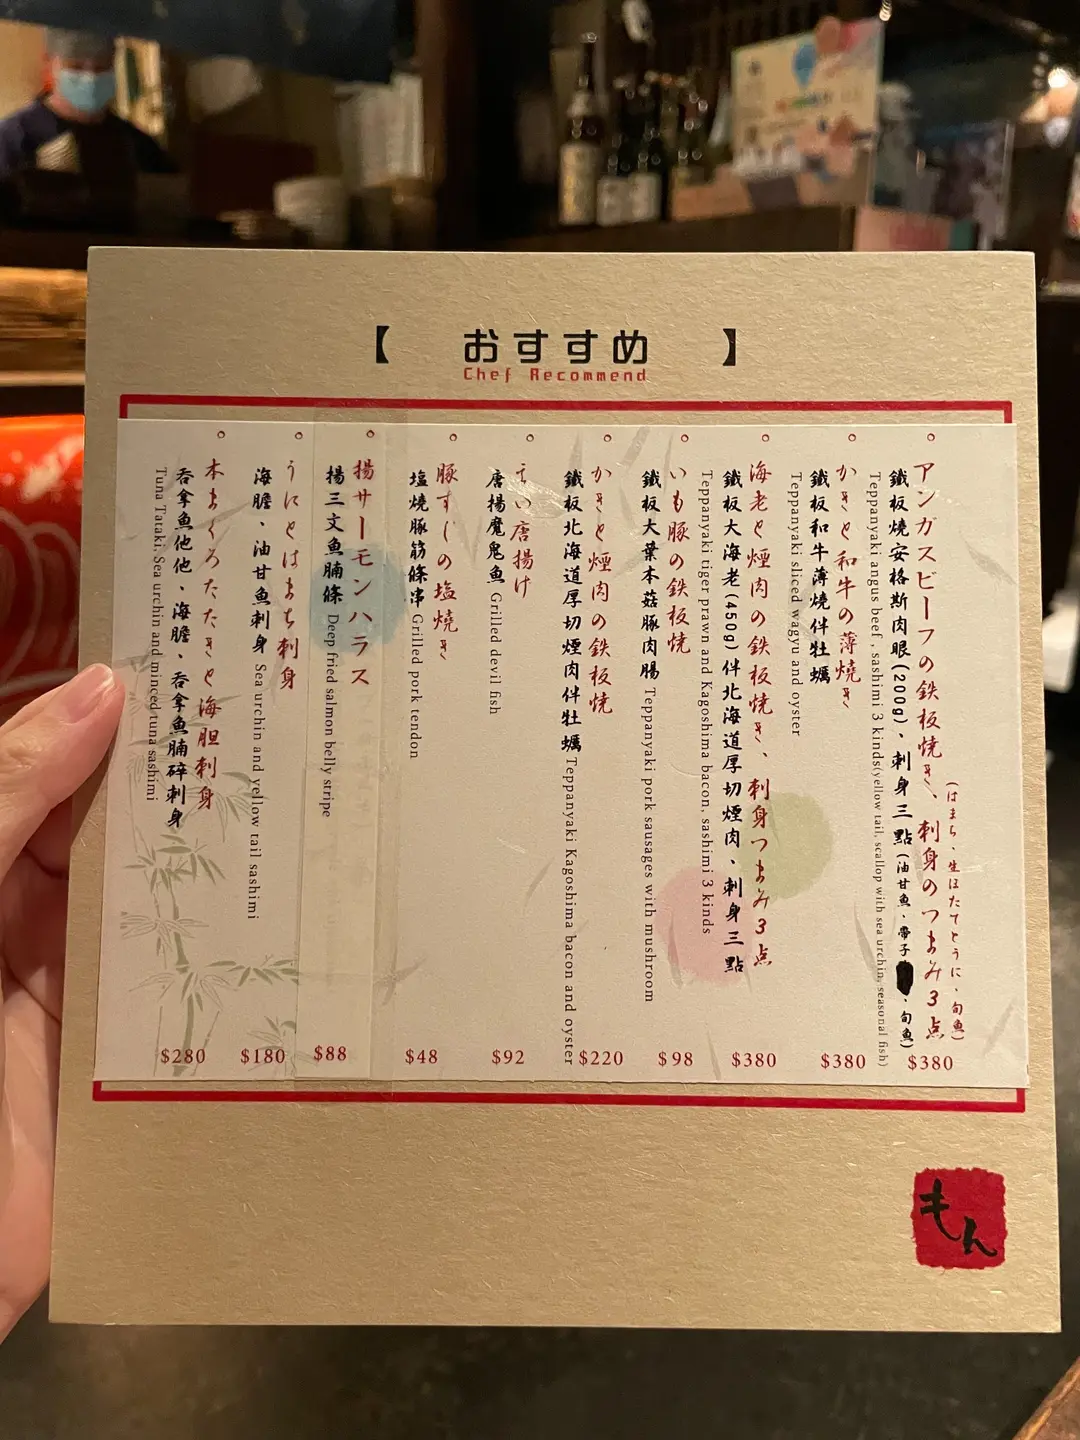 【 おすすめ 】
Chef Recommend
アンガスビーフの鉄板焼き、刺身のつまみ3点
(はまち、生ほたてとうに、旬魚)
鐵板燒安格斯肉眼(200g)、刺身三點(油甘魚、帶子、旬魚)
Teppanyaki angus beef , sashimi 3 kinds(yellow tail, scallop with sea urchin, seasonal fish)
$380
かきと和牛の薄焼き
鐵板和牛薄燒伴牡蠣
Teppanyaki sliced wagyu and oyster
$380
海老と煙肉の鉄板焼き、刺身つまみ3点
鐵板大海老(450g)伴北海道厚切煙肉、刺身三點
Teppanyaki tiger prawn and Kagoshima bacon, sashimi 3 kinds
$380
いも豚の鉄板焼
鐵板大葉本菇豚肉腸 Teppanyaki pork sausages with mushroom
$98
かきと煙肉の鉄板焼
鐵板北海道厚切煙肉伴牡蠣 Teppanyaki Kagoshima bacon and oyster
$220
えい唐揚け
唐揚魔鬼魚 Grilled devil fish
$92
豚すじの塩焼き
塩燒豚筋條串 Grilled pork tendon
$48
揚サーモンハラス
揚三文魚腩條 Deep fried salmon belly stripe
$88
うにとはまち刺身
海膽、油甘魚刺身 Sea urchin and yellow tail sashimi
$180
本まぐろたたきと海胆刺身
吞拿魚他他、海膽、吞拿魚腩碎刺身
Tuna Tataki, Sea urchin and minced tuna sashimi
$280
もん